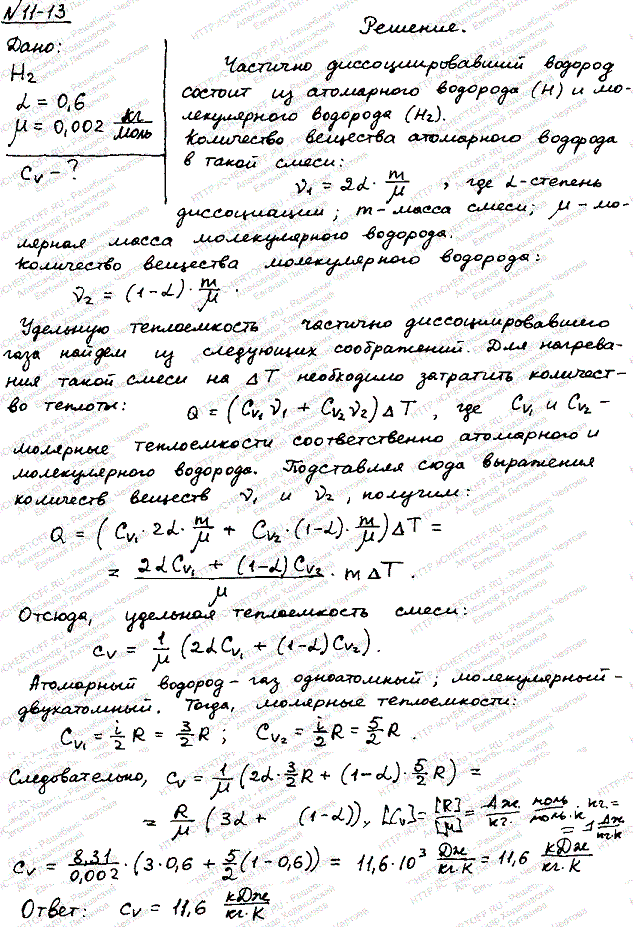 N 11-13
Решение.
Дано:
H₂
α = 0,6
μ = 0,002 кг/моль
C_V - ?
Частично диссоциировавший водород
состоит из атомарного водорода (H) и мо-
лекулярного водорода (H₂).
Количество вещества атомарного водорода
в такой смеси:
ν₁ = 2α · m/μ , где α-степень
диссоциации; m - масса смеси; μ - мо-
лярная масса молекулярного водорода.
Количество вещества молекулярного водорода:
ν₂ = (1-α) · m/μ .
Удельную теплоемкость частично диссоциировавшего
газа найдем из следующих соображений. Для нагрева-
ния такой смеси на ΔT необходимо затратить количест-
во теплоты: Q = (C_V₁ν₁ + C_V₂ν₂)ΔT , где C_V₁ и C_V₂ -
молярные теплоемкости соответственно атомарного и
молекулярного водорода. Подставляя сюда выражения
количеств веществ ν₁ и ν₂, получим:
Q = (C_V₁ · 2α · m/μ + C_V₂ · (1-α) · m/μ)ΔT =
= (2αC_V₁ + (1-α)C_V₂)/μ · mΔT .
Отсюда, удельная теплоемкость смеси:
c_V = 1/μ (2αC_V₁ + (1-α)C_V₂).
Атомарный водород - газ одноатомный, молекулярный -
двухатомный. Тогда, молярные теплоемкости:
C_V₁ = i/2 R = 3/2 R ; C_V₂ = i/2 R = 5/2 R .
Следовательно, c_V = 1/μ (2α · 3/2 R + (1-α) · 5/2 R) =
= R/μ (3α + (1-α)), [c_V] = [R]/[μ] =
c_V = 8,31/0,002 · (3·0,6 + 5/2 (1-0,6)) = 11,6·10³ Дж/кг·К = 11,6 кДж/кг·К
Ответ: c_V = 11,6 кДж/кг·К